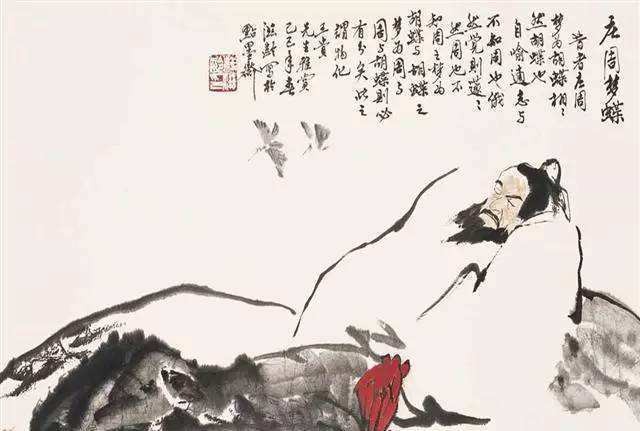 庄周梦蝶
昔者庄周
梦为胡蝶栩〻
然胡蝶也
自喻适志与
不知周也俄
然觉则蘧〻
然周也不
知周之梦为
胡蝶与胡蝶之
梦为周与
周与胡蝶则必
有分矣此之
谓物化
王贵
先生雅赏
己巳年春
写於
點墨斋